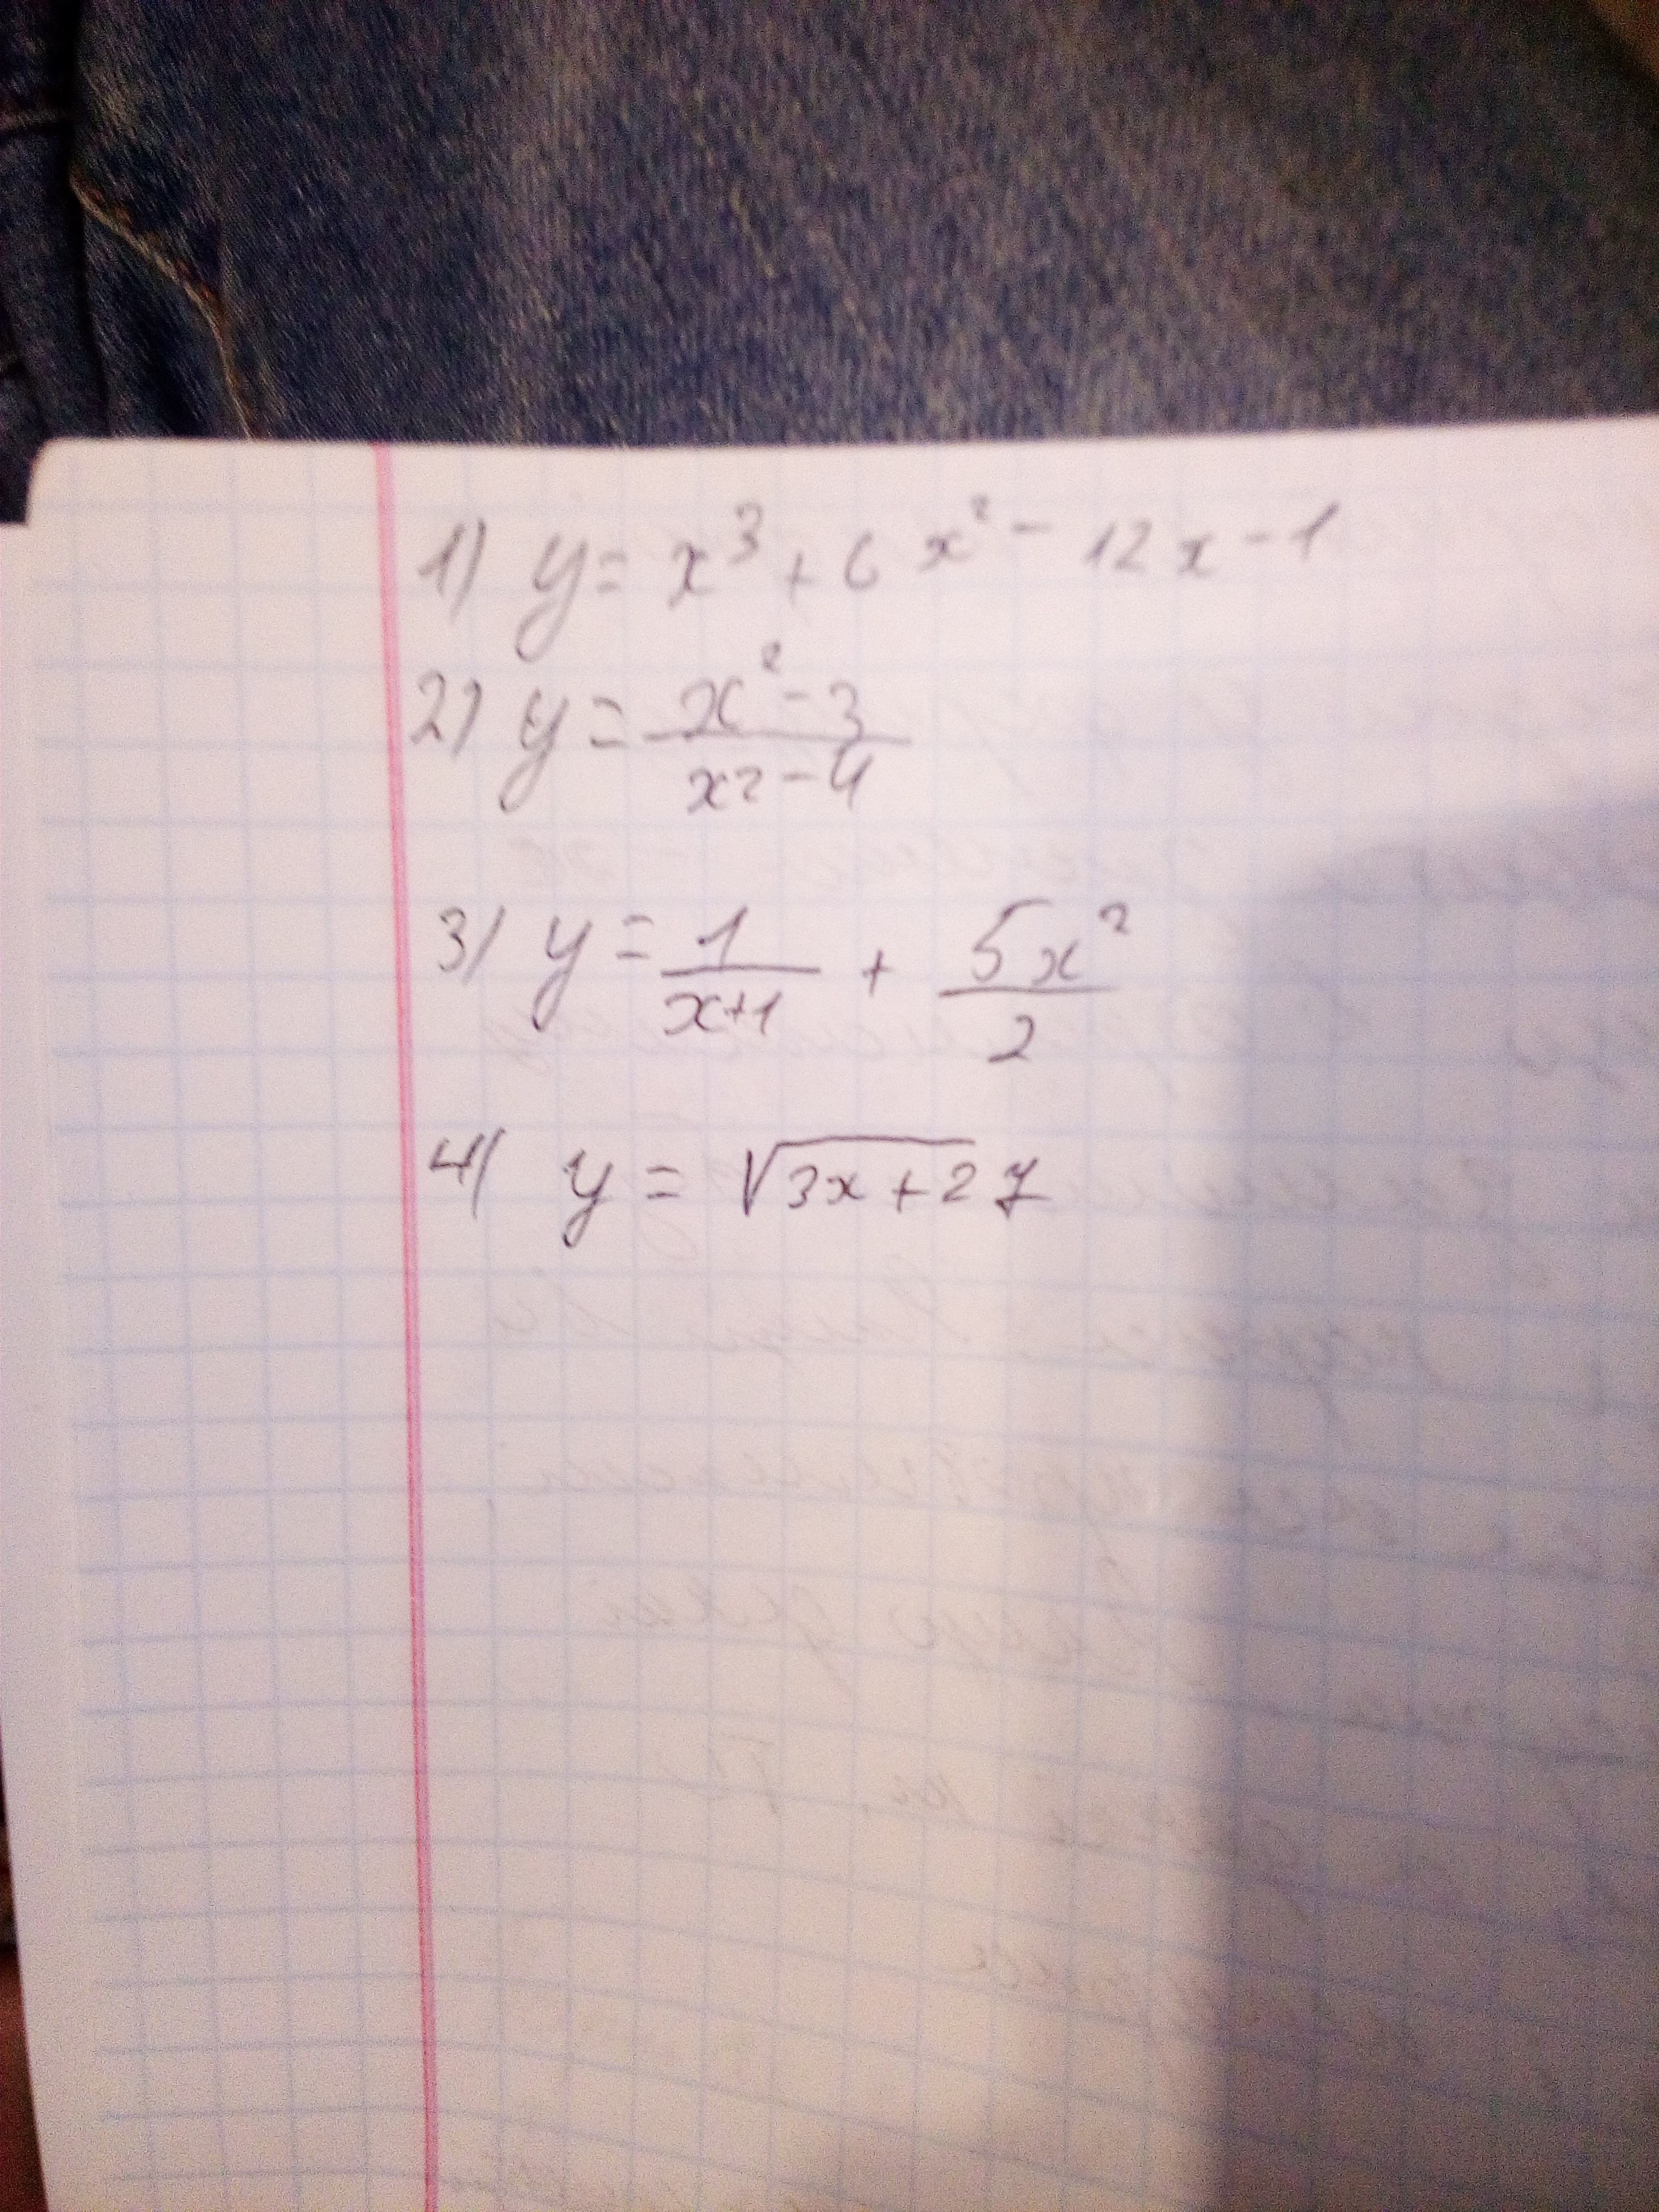 1) y = x³ + 6x² - 12x - 1
2) y = (x² - 3)/(x² - 4)
3) y = 1/(x+1) + 5x²/2
4) y = √(3x+27)